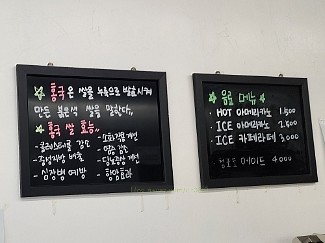 ☆ 홍국은 쌀을 누룩으로 발효시켜
만든 붉은색 쌀을 말한다.
☆ 홍국 쌀 효능
- 콜레스테롤 감소
- 중성지방 배출
- 심장병 예방
- 소화작용개선
- 염증 감소
- 당뇨증상 개선
- 항암효과
☆ 음료 메뉴 ☆
· HOT 아메리카노 1.500
· ICE 아메리카노 2.500
· ICE 카페라떼 3.000
에이드 4000